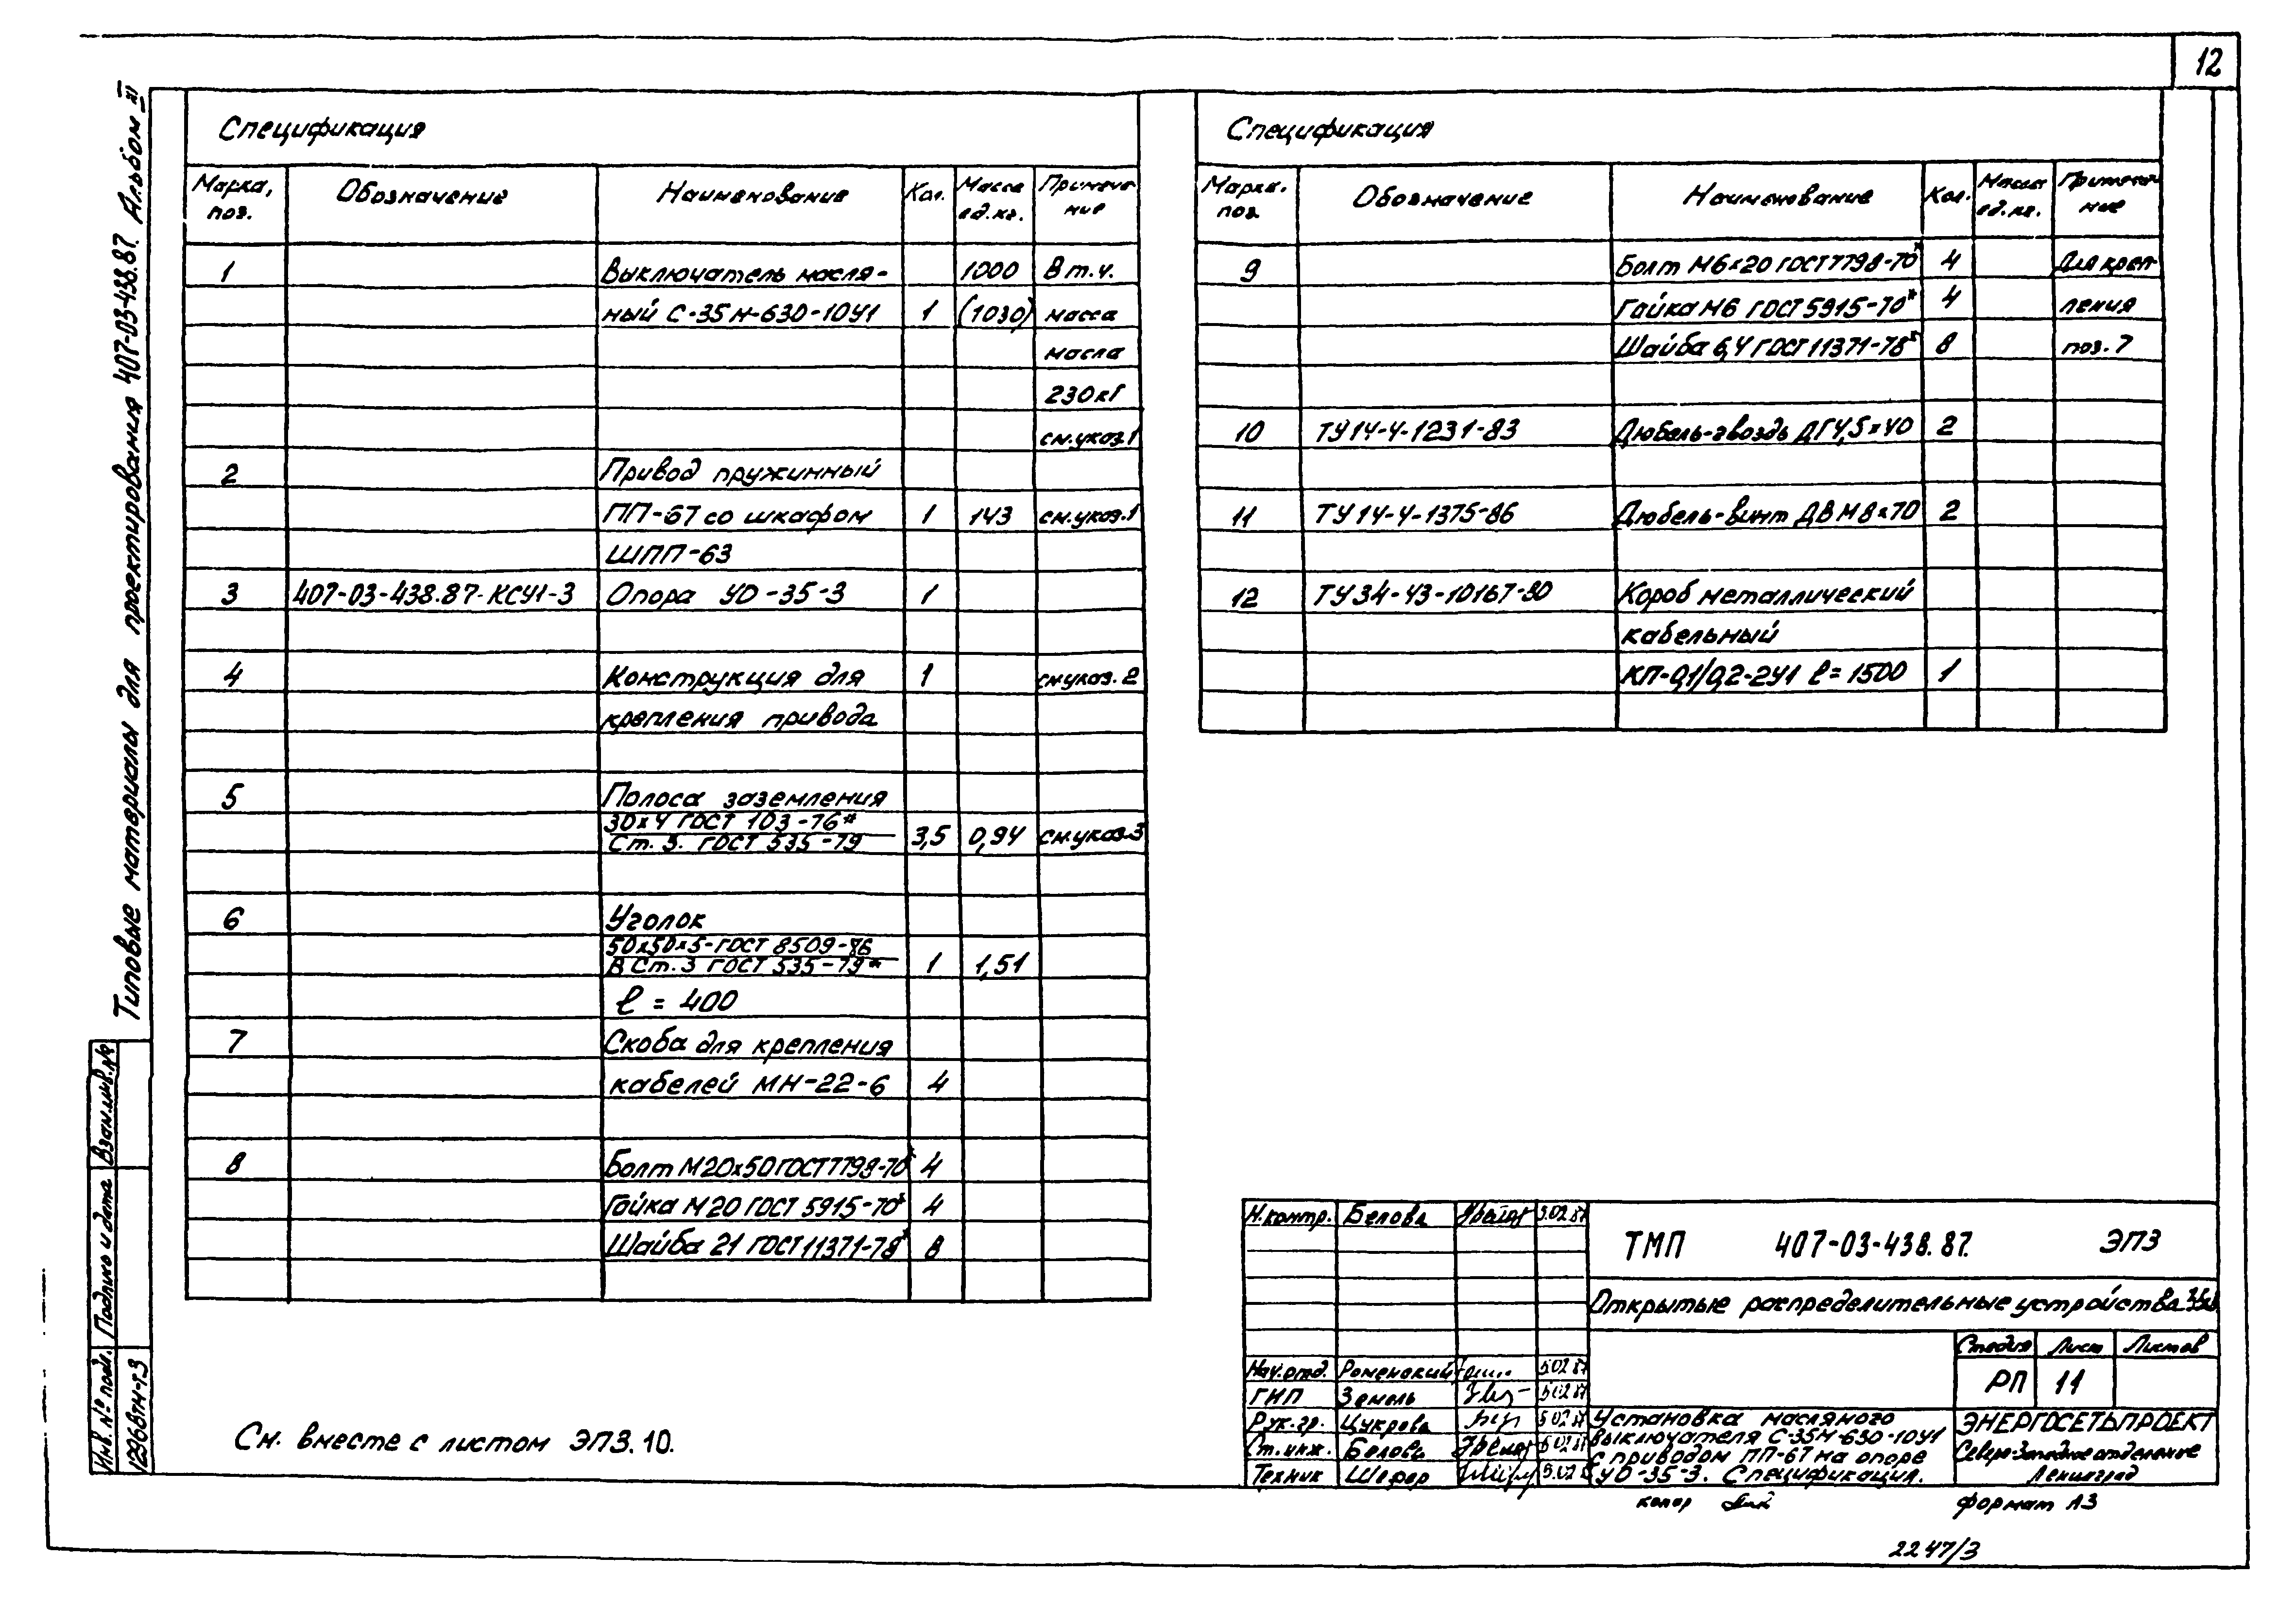 12
Типовые материалы для проектирования 407-03-438.87. Альбом III
Спецификация
Марка, поз. Обозначение Наименование Кол. Масса ед.кг. Примечание
1 Выключатель масля- 1000 В т.ч.
ный С-35М-630-10У1 1 (1030) масса
масла
230кг
см.указ.1
2 Привод пружинный
ПП-67 со шкафом 1 143 см.указ.1
ШПП-63
3 407-03-438.87-КСУ1-3 Опора УО-35-3 1
4 Конструкция для 1 см.указ.2
крепления привода
5 Полоса заземления
30х4 ГОСТ 103-76*
Ст. 3. ГОСТ 535-79 3,5 0,94 см.указ.3
6 Уголок
50х50х5-ГОСТ 8509-86
В Ст.3 ГОСТ 535-79* 1 1,51
ℓ = 400
7 Скоба для крепления
кабелей МН-22-6 4
8 Болт М20х50 ГОСТ 7798-70* 4
Гайка М20 ГОСТ 5915-70* 4
Шайба 21 ГОСТ 11371-78* 8
Спецификация
Марка, поз. Обозначение Наименование Кол. Масса ед.кг. Примечание
9 Болт М6х20 ГОСТ 7798-70* 4 Для креп-
Гайка М6 ГОСТ 5915-70* 4 ления
Шайба 6,4 ГОСТ 11371-78* 8 поз.7
10 ТУ14-4-1231-83 Дюбель-гвоздь ДГ4,5х40 2
11 ТУ14-4-1375-86 Дюбель-винт ДВ М8х70 2
12 ТУ34-43-10167-80 Короб металлический
кабельный
КП-0,1/0,2-2У1 ℓ=1500 1
См. вместе с листом ЭП3.10.
Взам.инв.№
Подпись и дата
Инв. № подл. 12996тм-т3
Н.контр. Белова 5.02.87
Нач.отд. Роменский 5.02.87
ГИП Земель 5.02.87
Рук.гр. Цукрова 5.02.87
Ст.инж. Белова 5.02.87
Техник Шефер 5.02.87
ТМП 407-03-438.87. ЭП3
Открытые распределительные устройства 35кВ
Стадия Лист Листов
РП 11
Установка масляного
выключателя С-35М-630-10У1
с приводом ПП-67 на опоре
УО-35-3. Спецификация.
ЭНЕРГОСЕТЬПРОЕКТ
Северо-Западное отделение
Ленинград
копир
формат А3
2247/3